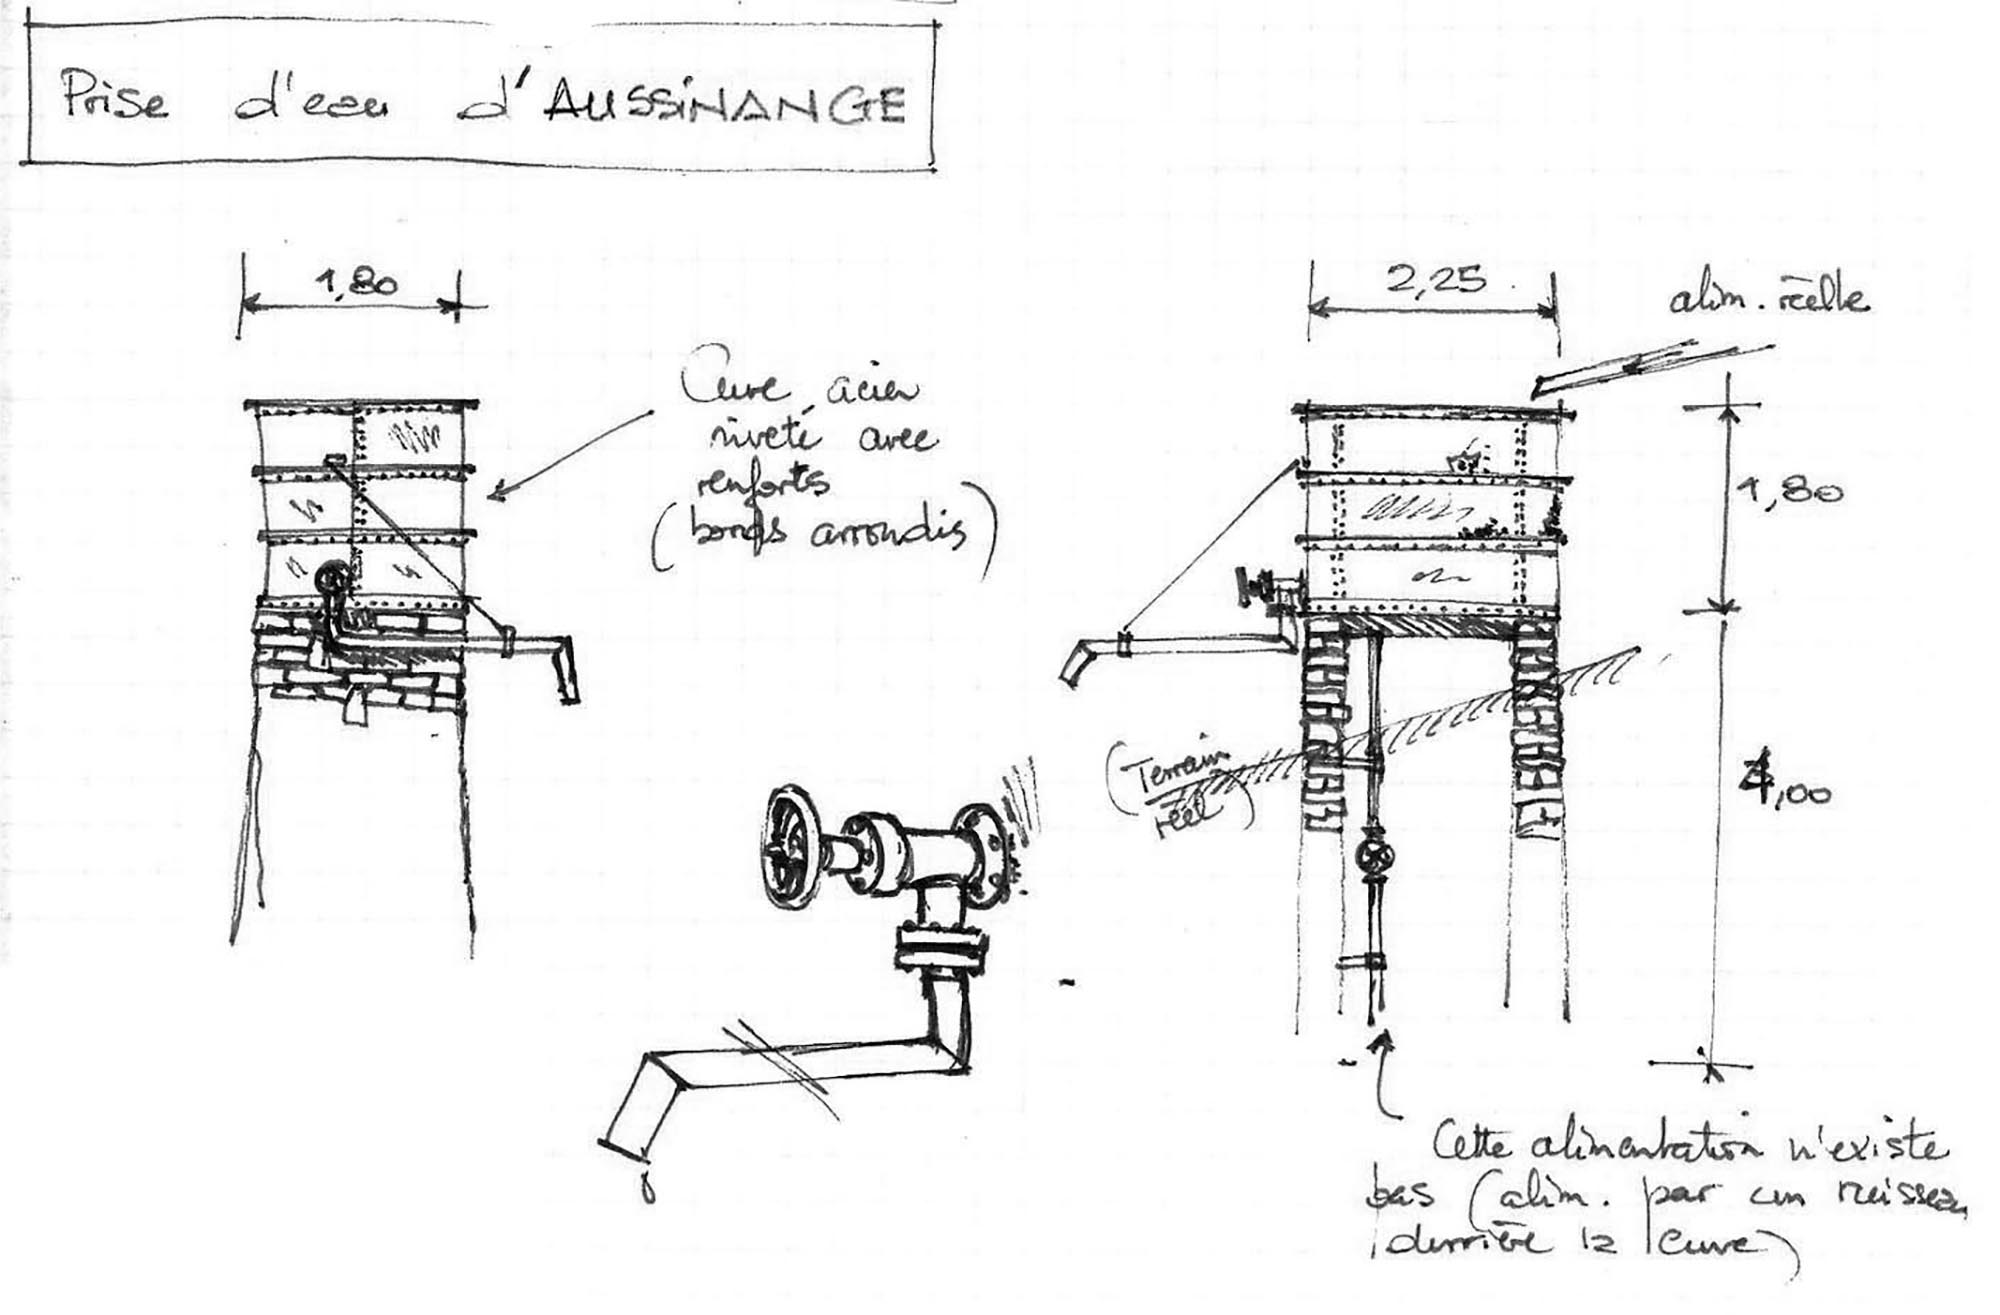 Prise d'eau d'AUSSINANGE
1,80
2,25
alim. réelle
Cuve acier
riveté avec
renforts
(bords arrondis)
1,80
(Terrain
réel)
4,00
Cette alimentation n'existe
pas (alim. par un ruisseau
derrière la cuve)